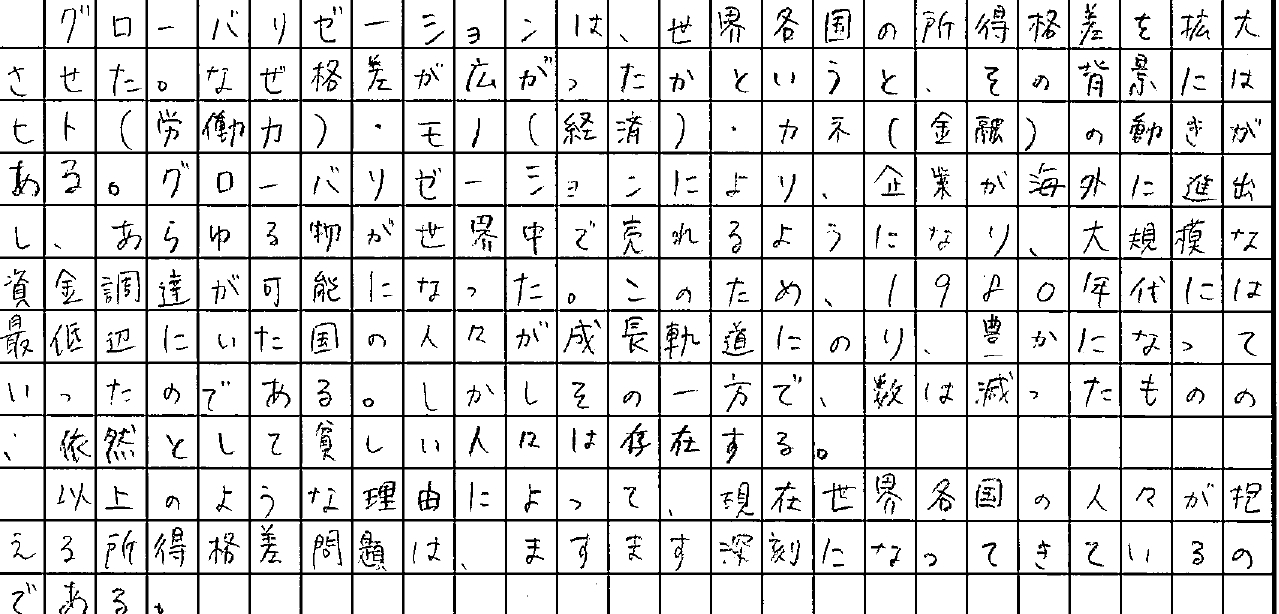 グローバリゼーションは、世界各国の所得格差を拡大
させた。なぜ格差が広がったかというと、その背景には
ヒト(労働力)・モノ(経済)・カネ(金融)の動きが
ある。グローバリゼーションにより、企業が海外に進出
し、あらゆる物が世界中で売れるようになり、大規模な
資金調達が可能になった。このため、1980年代には
最低辺にいた国の人々が成長軌道にのり、豊かになって
いったのである。しかしその一方で、数は減ったものの
、依然として貧しい人々は存在する。
以上のような理由によって、現在世界各国の人々が抱
える所得格差問題は、ますます深刻になってきているの
である。